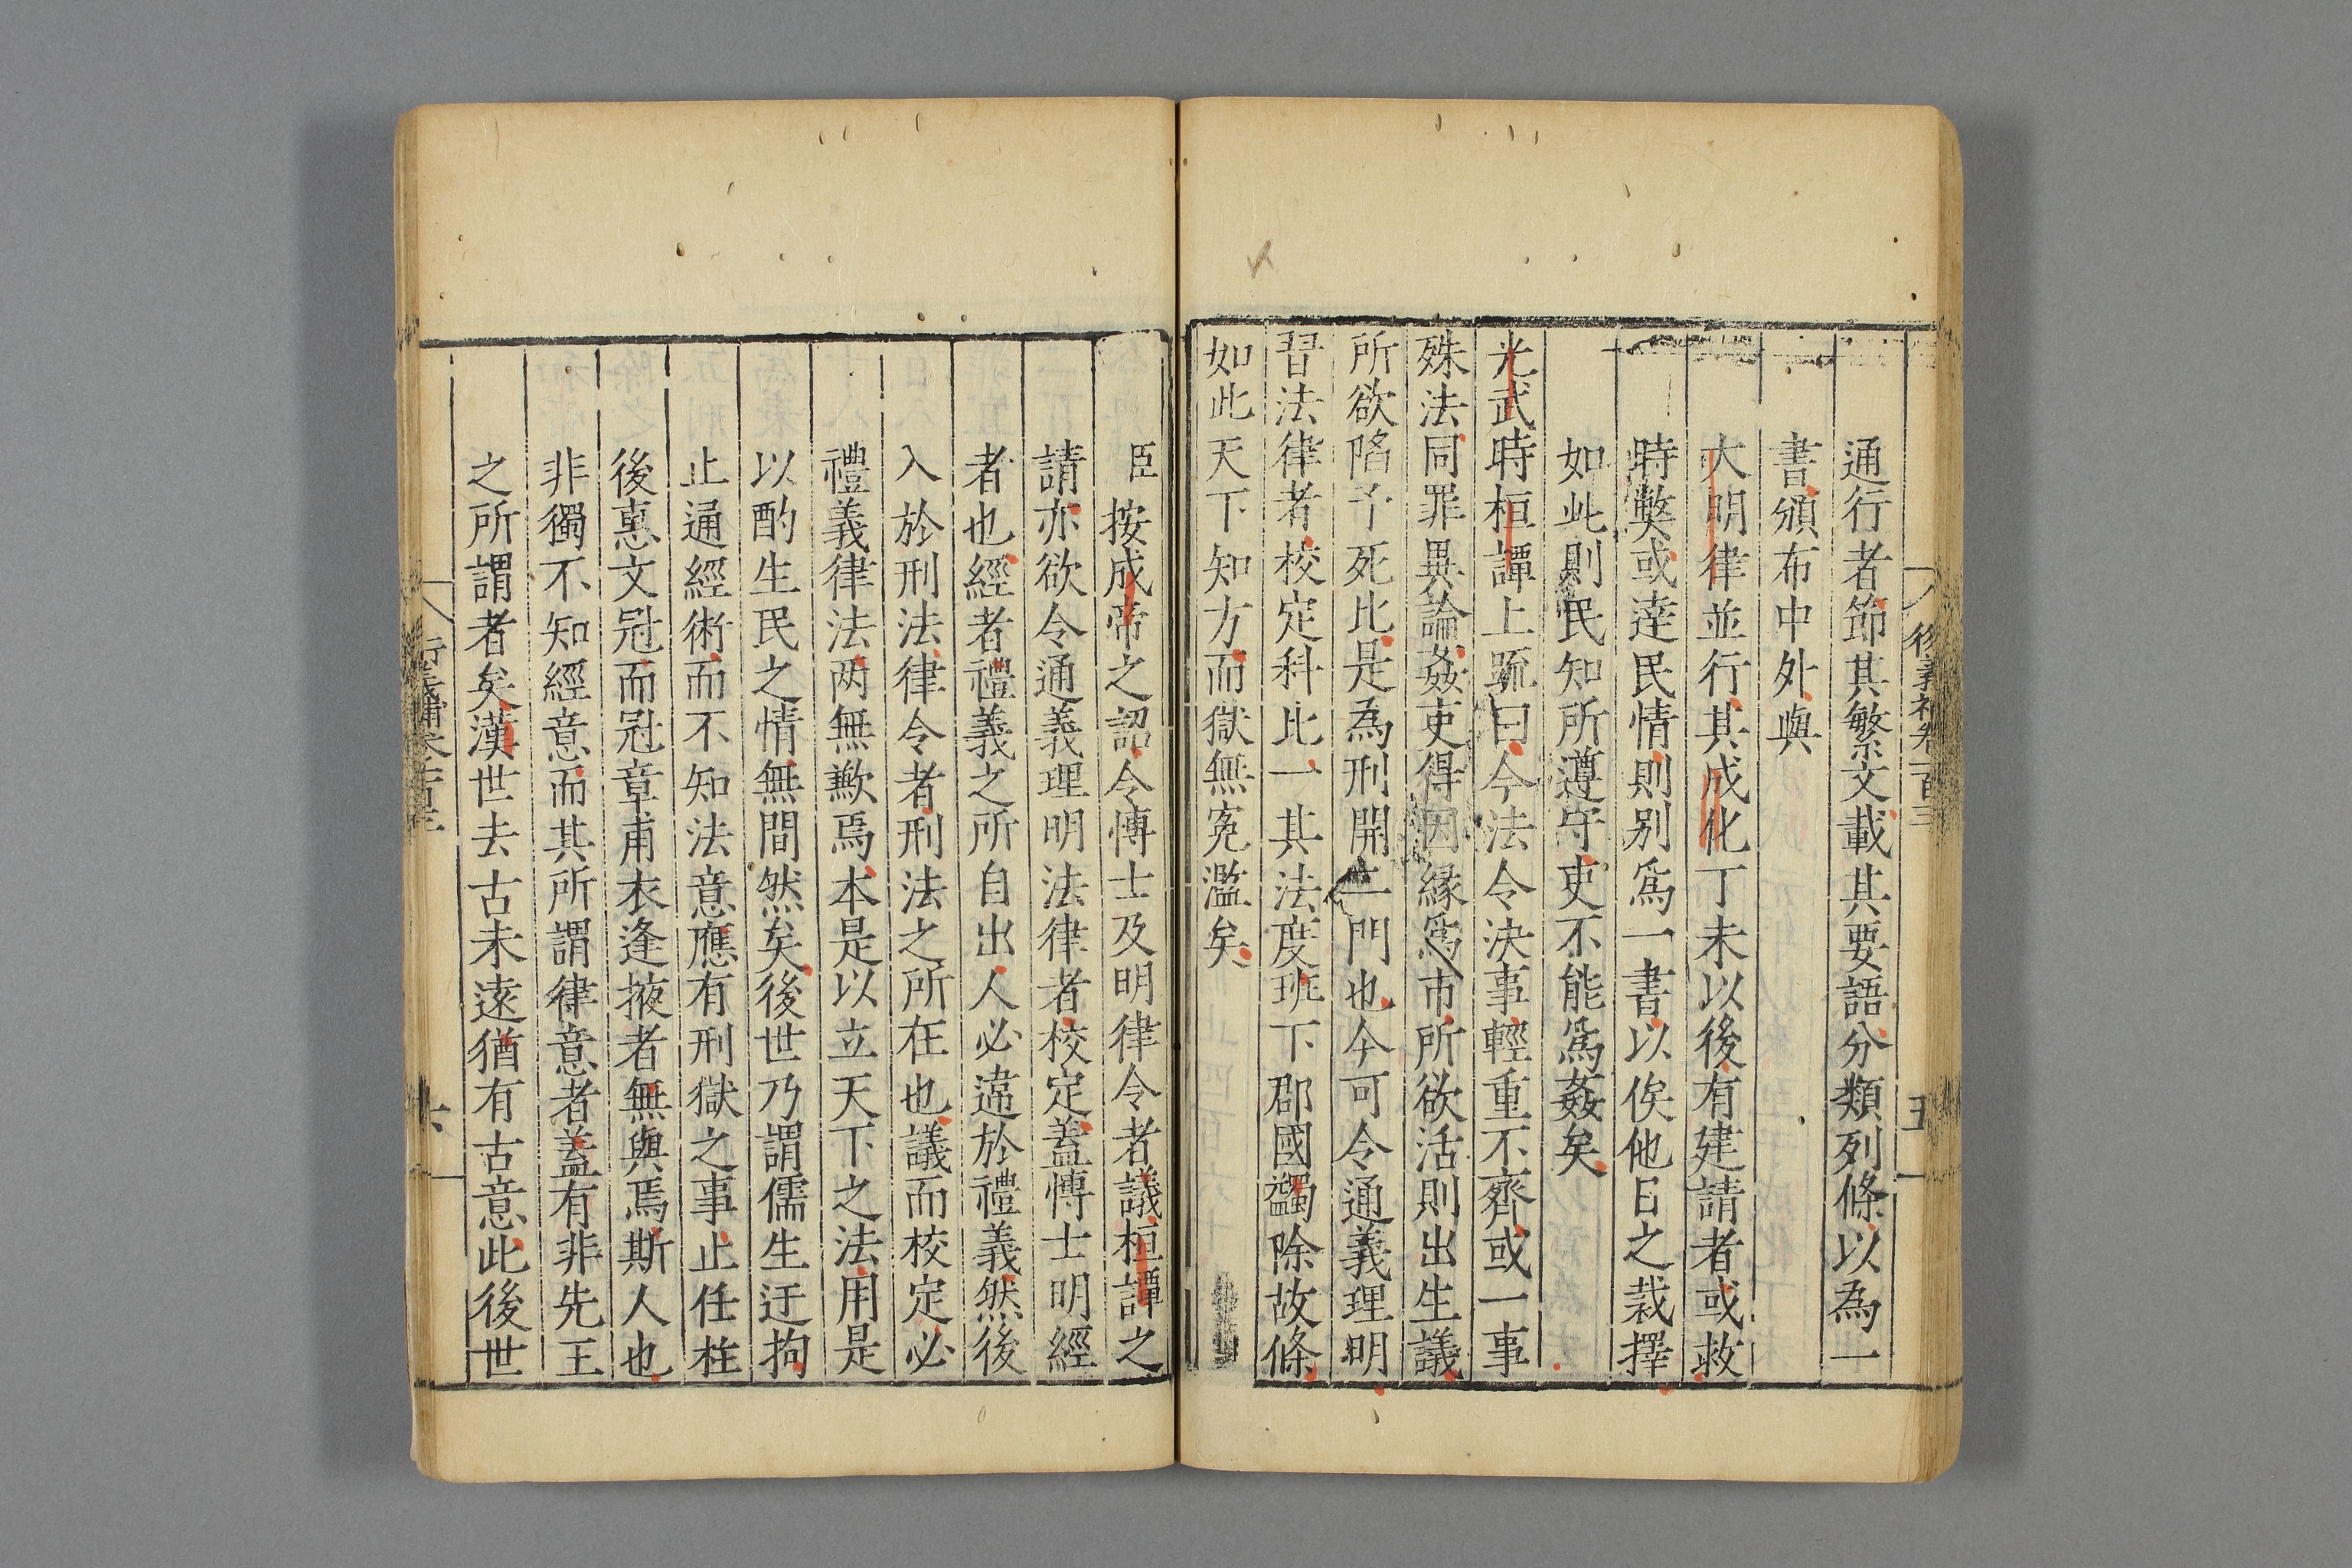 通行者節其繁文載其要語分類列條以為一
書頒布中外與
大明律並行其成化丁未以後有建請者或救
時獘或達民情則别爲一書以俟他日之裁擇
如此則民知所遵守吏不能爲姦矣
光武時桓譚上䟽曰今法令決事輕重不齊或一事
殊法同罪異論姦吏得因緣爲市所欲活則出生議
所欲陷予死比是為刑開二門也今可令通義理明
習法律者校定科比一其法度班下郡國蠲除故條
如此天下知方而獄無寃濫矣
臣按成帝之詔令博士及明律令者議桓譚之
請亦欲令通義理明法律者校定蓋博士明經
者也經者禮義之所自出人必違於禮義然後
入於刑法律令者刑法之所在也議而校定必
禮義律法两無歉焉本是以立天下之法用是
以酌生民之情無間然矣後世乃謂儒生迂拘
止通經術而不知法意應有刑獄之事止任柱
後惠文冠而冠章甫衣逢掖者無與焉斯人也
非獨不知經意而其所謂律意者蓋有非先王
之所謂者矣漢世去古未遠猶有古意此後世